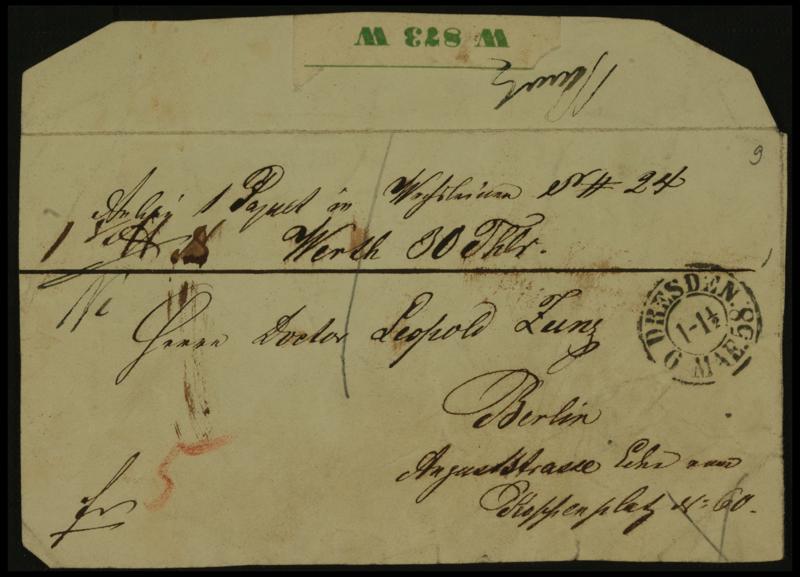 W 873 W
9
1 Paquet in Wachsleinen N # 24
Werth 30 Thlr.
Herrn Doctor Leopold Zunz
DRESDEN. 6 MAE. 58
1-1½
Berlin
Auguststrasse Ecke vom
Koppenplatz N: 60.
5
fr